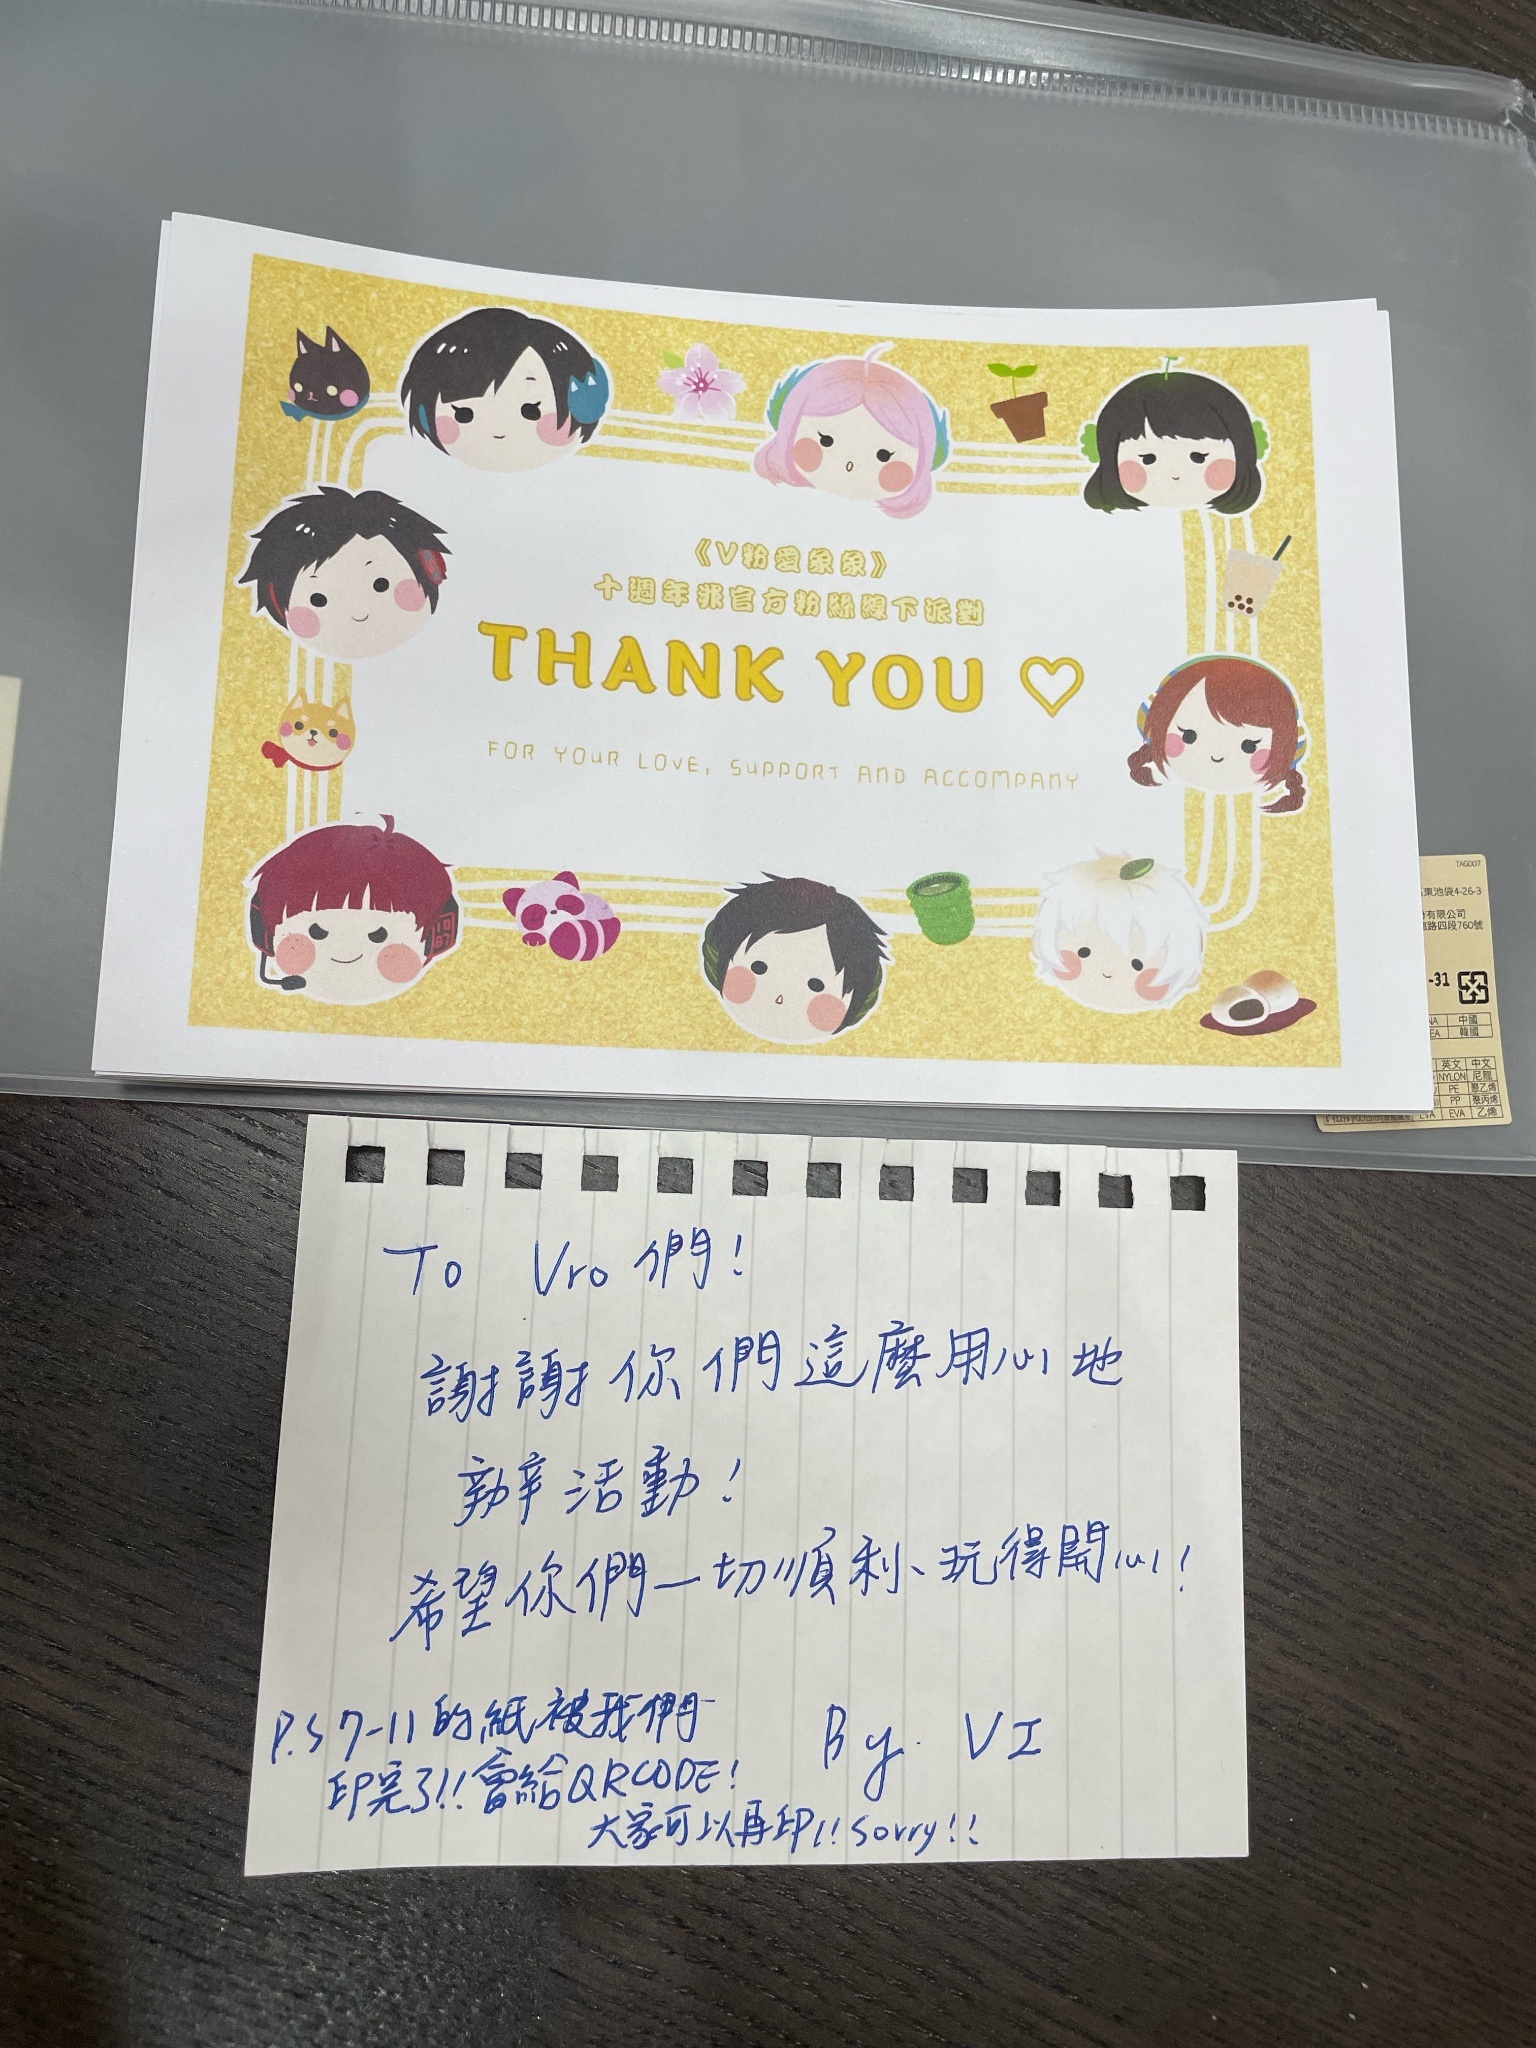 《V粉愛象象》
十週年非官方粉絲線下派對
THANK YOU ♡
FOR YOUR LOVE, SUPPORT AND ACCOMPANY
1987
TAG007
東池袋4-26-3
有限公司
路四段760號
-31
中國
韓國
英文 中文
NYLON 尼龍
PE 聚乙烯
PP 聚丙烯
EVA EVA 乙烯
To Vro們!
謝謝你們這麼用心地
辦活動!
希望你們一切順利、玩得開心!
P.S 7-11的紙被我們
印完了!! 會給QRCODE!
大家可以再印!! Sorry!!
By. VI